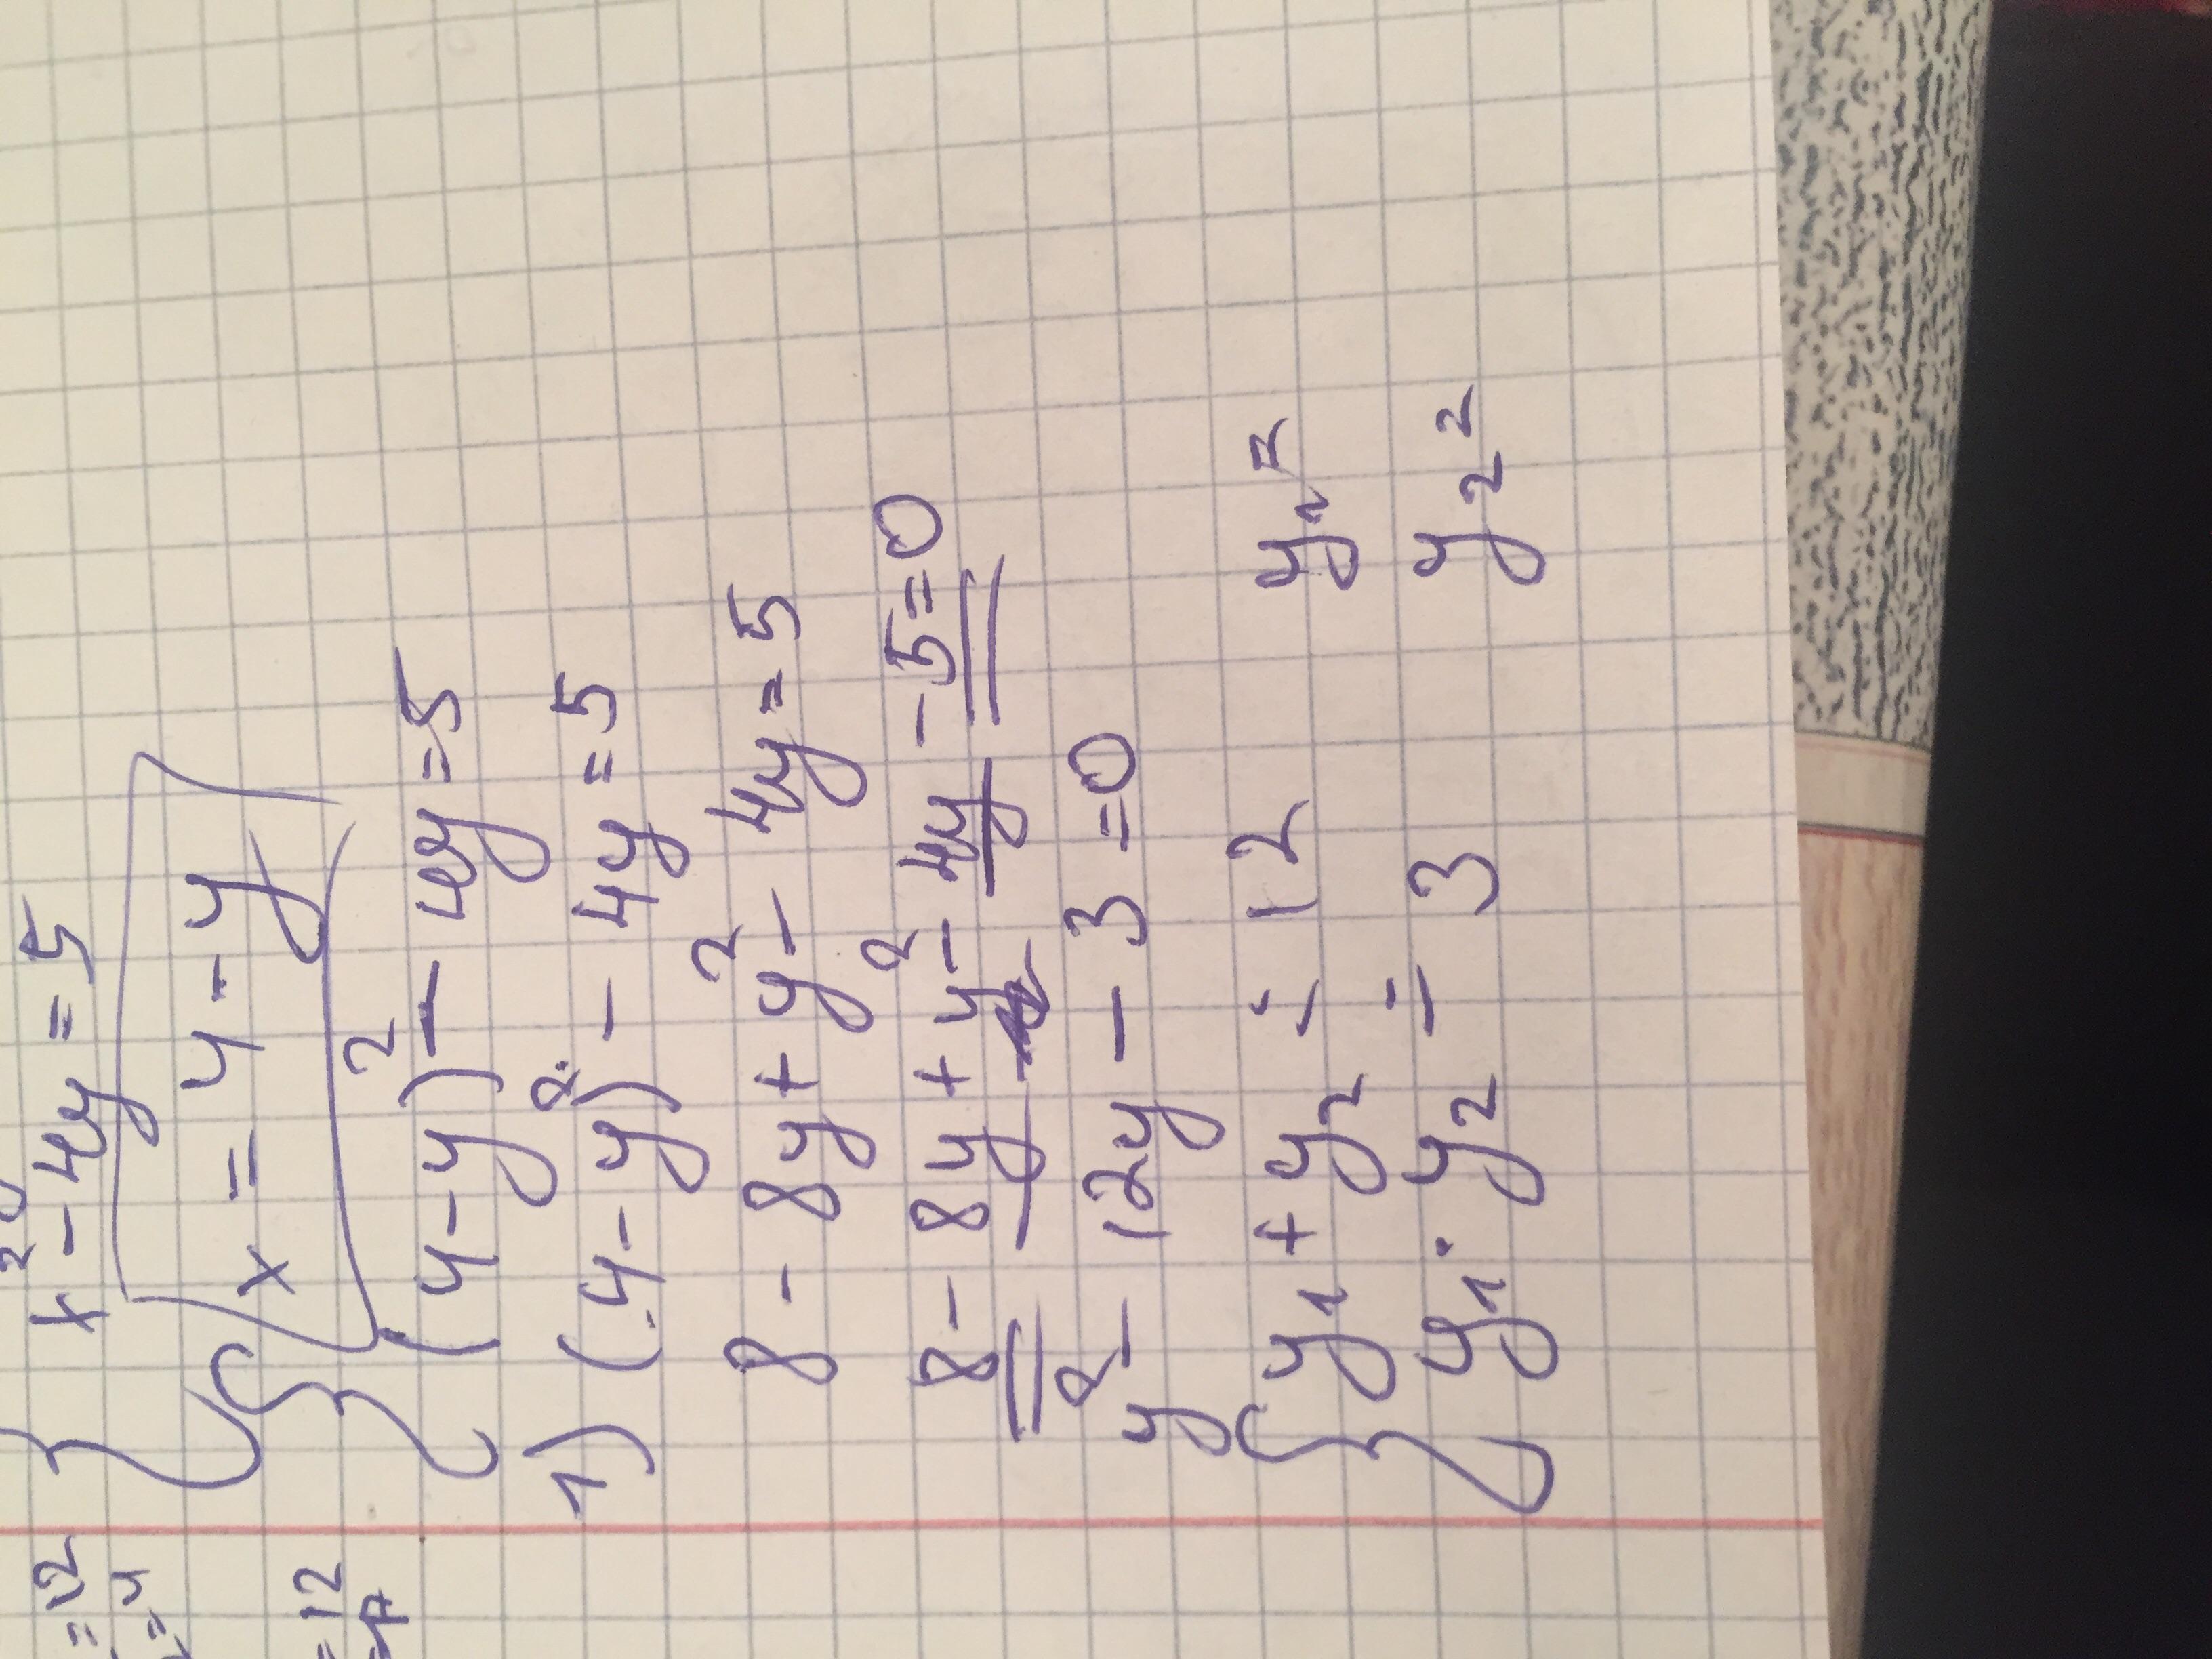 x² - 4y = 5
x = 4 - y
(4-y)² - 4y = 5
1) (4-y)² - 4y = 5
8 - 8y + y² - 4y = 5
8 - 8y + y² - 4y - 5 = 0
y² - 12y - 3 = 0
y₁ + y₂ = 12 y₁ =
y₁ · y₂ = 3 y₂ =
= 12
= 4
= 12